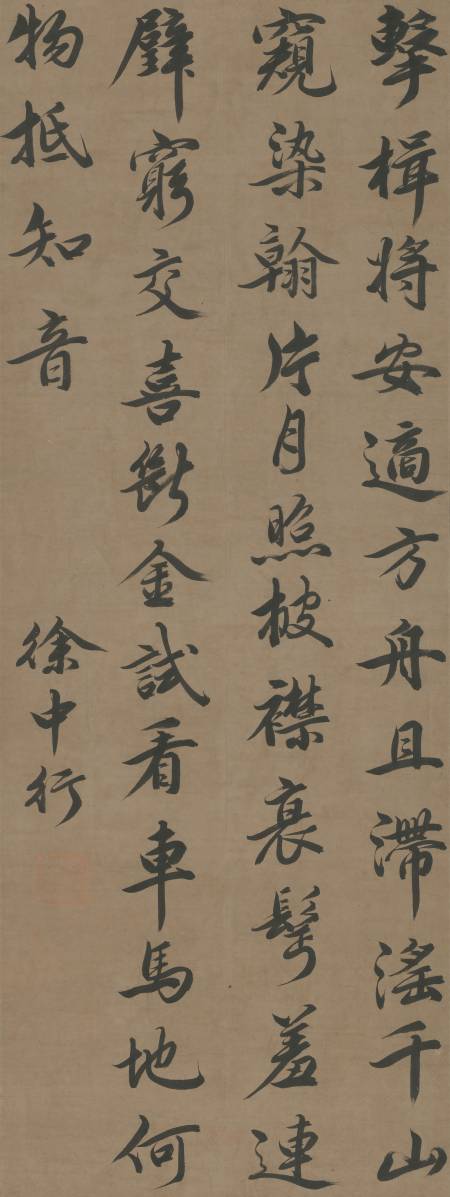 擊楫將安適方舟且滯淫千山
窺染翰片月照披襟衰髩羞連
璧窮交喜斷金試看車馬地何
物抵知音
徐中行